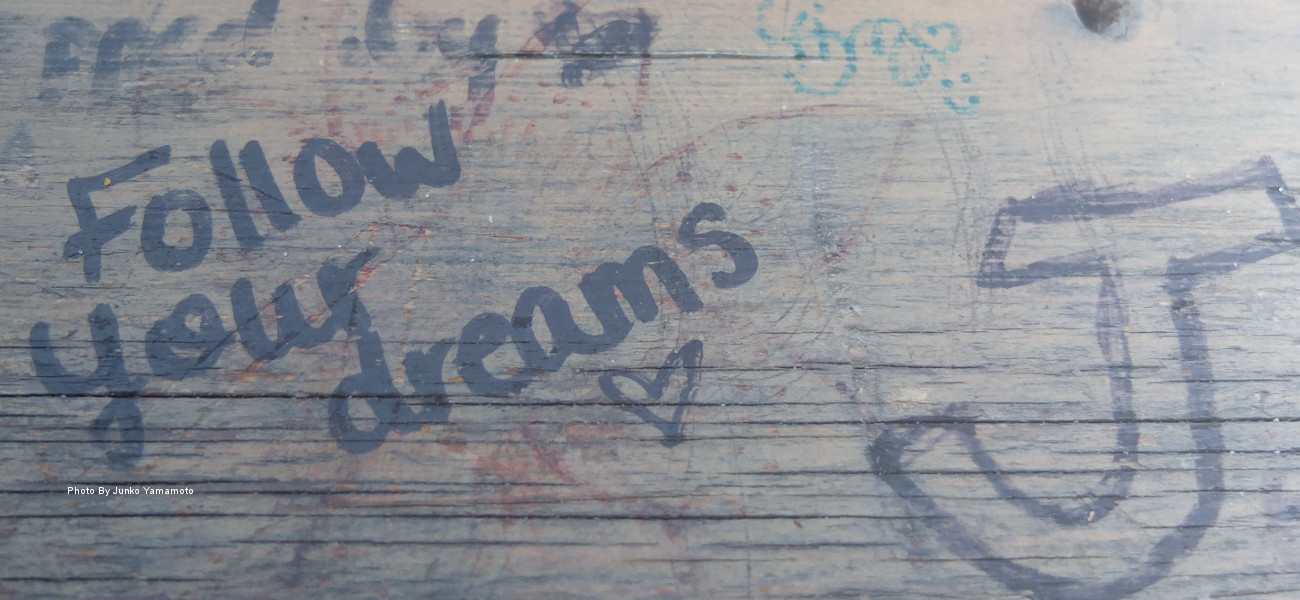 Follow
your
dreams
J
Photo By Junko Yamamoto